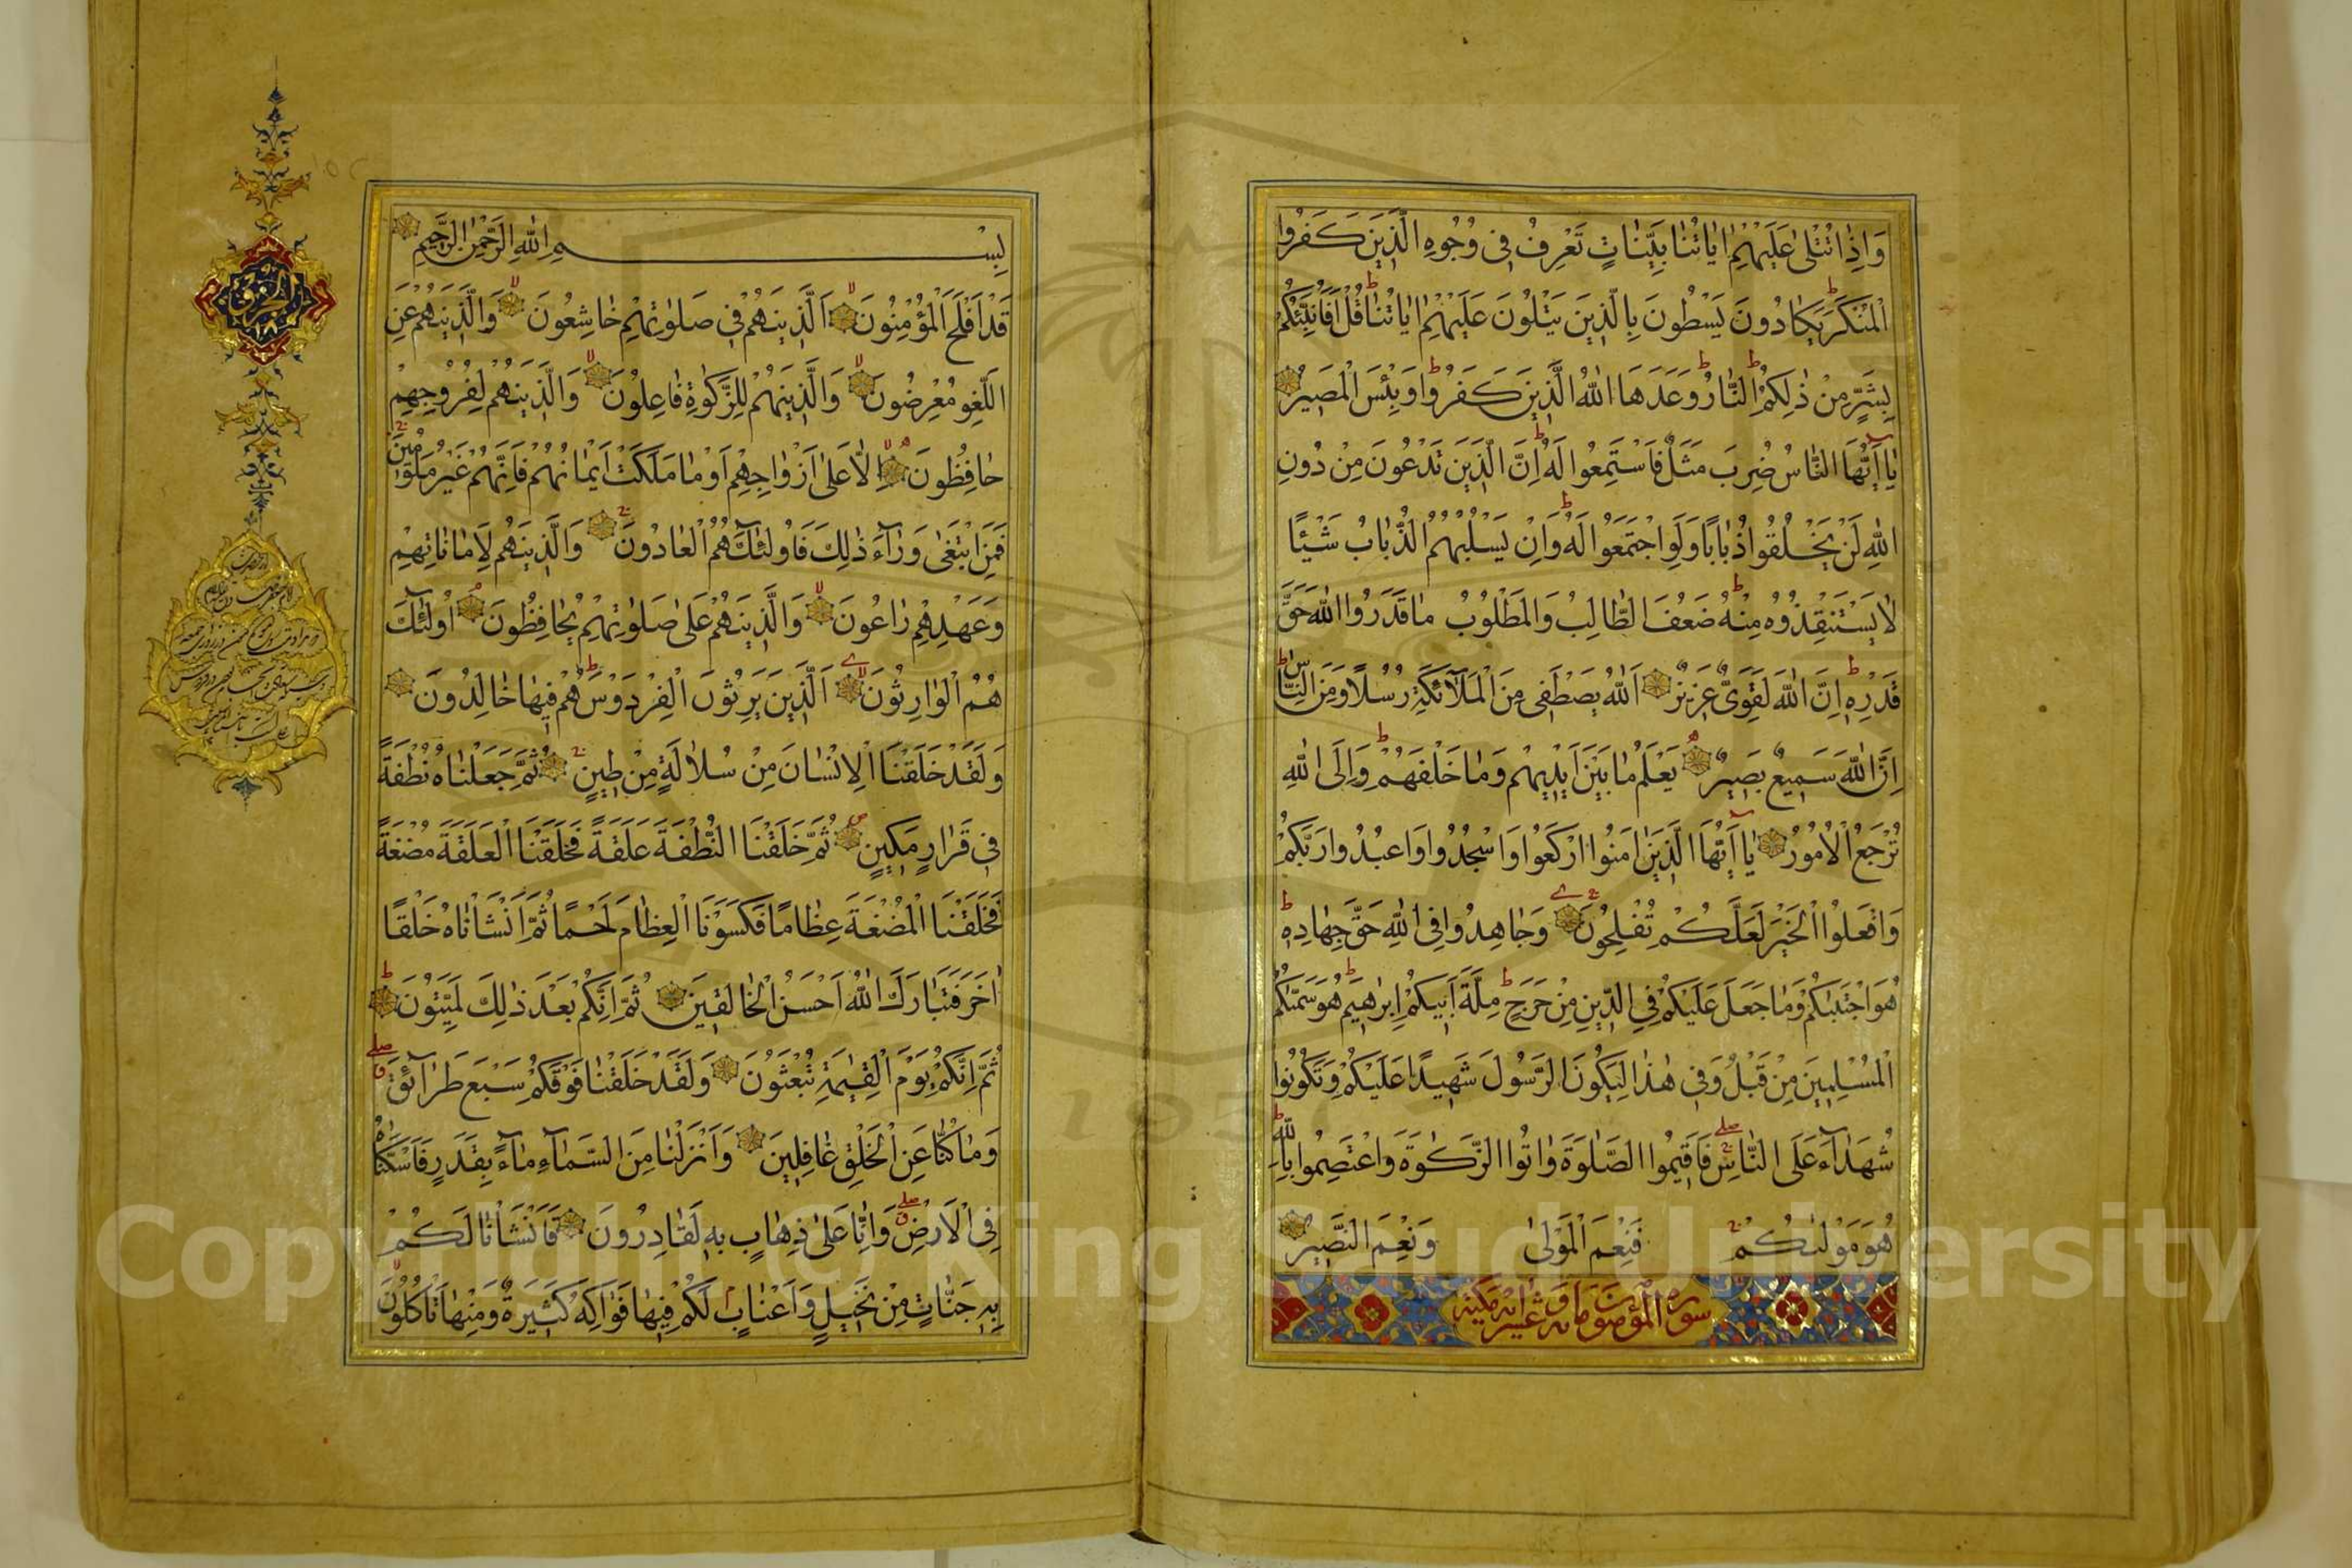 وَاِذَا تُتْلٰى عَلَيْهِمْ اٰيَاتُنَا بَيِّنَاتٍ تَعْرِفُ فِى وُجُوهِ الَّذِينَ كَفَرُوا
الْمُنْكَرَ يَكَادُونَ يَسْطُونَ بِالَّذِينَ يَتْلُونَ عَلَيْهِمْ اٰيَاتُنَا قُلْ اَفَاُنَبِّئُكُمْ
بِشَرٍّ مِنْ ذٰلِكُمُ النَّارُ وَعَدَهَا اللّٰهُ الَّذِينَ كَفَرُوا وَبِئْسَ الْمَصِيرُ
يٰا اَيُّهَا النَّاسُ ضُرِبَ مَثَلٌ فَاسْتَمِعُوا لَهُ اِنَّ الَّذِينَ تَدْعُونَ مِنْ دُونِ
اللّٰهِ لَنْ يَخْلُقُوا ذُبَابًا وَلَوِ اجْتَمَعُوا لَهُ وَاِنْ يَسْلُبْهُمُ الذُّبَابُ شَيْئًا
لٰا يَسْتَنْقِذُوهُ مِنْهُ ضَعُفَ الطَّالِبُ وَالْمَطْلُوبُ مٰا قَدَرُوا اللّٰهَ حَقَّ
قَدْرِهِ اِنَّ اللّٰهَ لَقَوِىٌّ عَزِيزٌ اَللّٰهُ يَصْطَفِى مِنَ الْمَلٰآئِكَةِ رُسُلًا وَمِنَ النَّاسِ
اِنَّ اللّٰهَ سَمِيعٌ بَصِيرٌ يَعْلَمُ مٰا بَيْنَ اَيْدِيهِمْ وَمٰا خَلْفَهُمْ وَاِلَى اللّٰهِ
تُرْجَعُ الْاُمُورُ يٰا اَيُّهَا الَّذِينَ اٰمَنُوا ارْكَعُوا وَاسْجُدُوا وَاعْبُدُوا رَبَّكُمْ
وَافْعَلُوا الْخَيْرَ لَعَلَّكُمْ تُفْلِحُونَ وَجَاهِدُوا فِى اللّٰهِ حَقَّ جِهَادِهِ
هُوَ اجْتَبٰىكُمْ وَمٰا جَعَلَ عَلَيْكُمْ فِى الدِّينِ مِنْ حَرَجٍ مِلَّةَ اَبِيكُمْ اِبْرٰهِيمَ هُوَ سَمّٰىكُمُ
الْمُسْلِمِينَ مِنْ قَبْلُ وَفِى هٰذَا لِيَكُونَ الرَّسُولُ شَهِيدًا عَلَيْكُمْ وَتَكُونُوا
شُهَدَآءَ عَلَى النَّاسِ فَاَقِيمُوا الصَّلٰوةَ وَاٰتُوا الزَّكٰوةَ وَاعْتَصِمُوا بِاللّٰهِ
هُوَ مَوْلٰىكُمْ فَنِعْمَ الْمَوْلٰى وَنِعْمَ النَّصِيرُ
سورة المؤمنون مائة و عشر اية مكية
بِسْمِ اللّٰهِ الرَّحْمٰنِ الرَّحِيمِ
قَدْ اَفْلَحَ الْمُؤْمِنُونَ اَلَّذِينَ هُمْ فِى صَلٰوتِهِمْ خٰاشِعُونَ وَالَّذِينَ هُمْ عَنِ
اللَّغْوِ مُعْرِضُونَ وَالَّذِينَ هُمْ لِلزَّكٰوةِ فٰاعِلُونَ وَالَّذِينَ هُمْ لِفُرُوجِهِمْ
حٰافِظُونَ اِلّٰا عَلٰى اَزْوٰاجِهِمْ اَوْ مٰا مَلَكَتْ اَيْمٰانُهُمْ فَاِنَّهُمْ غَيْرُ مَلُومِينَ
فَمَنِ ابْتَغٰى وَرٰآءَ ذٰلِكَ فَاُولٰئِكَ هُمُ الْعٰادُونَ وَالَّذِينَ هُمْ لِاَمٰانٰاتِهِمْ
وَعَهْدِهِمْ رٰاعُونَ وَالَّذِينَ هُمْ عَلٰى صَلَوٰاتِهِمْ يُحٰافِظُونَ اُولٰئِكَ
هُمُ الْوٰارِثُونَ اَلَّذِينَ يَرِثُونَ الْفِرْدَوْسَ هُمْ فِيهٰا خٰالِدُونَ
وَلَقَدْ خَلَقْنَا الْاِنْسٰانَ مِنْ سُلٰالَةٍ مِنْ طِينٍ ثُمَّ جَعَلْنٰاهُ نُطْفَةً
فِى قَرٰارٍ مَكِينٍ ثُمَّ خَلَقْنَا النُّطْفَةَ عَلَقَةً فَخَلَقْنَا الْعَلَقَةَ مُضْغَةً
فَخَلَقْنَا الْمُضْغَةَ عِظٰامًا فَكَسَوْنَا الْعِظٰامَ لَحْمًا ثُمَّ اَنْشَاْنٰاهُ خَلْقًا
اٰخَرَ فَتَبٰارَكَ اللّٰهُ اَحْسَنُ الْخٰالِقِينَ ثُمَّ اِنَّكُمْ بَعْدَ ذٰلِكَ لَمَيِّتُونَ
ثُمَّ اِنَّكُمْ يَوْمَ الْقِيٰمَةِ تُبْعَثُونَ وَلَقَدْ خَلَقْنٰا فَوْقَكُمْ سَبْعَ طَرٰآئِقَ
وَمٰا كُنّٰا عَنِ الْخَلْقِ غٰافِلِينَ وَاَنْزَلْنٰا مِنَ السَّمٰآءِ مٰآءً بِقَدَرٍ فَاَسْكَنّٰاهُ
فِى الْاَرْضِ وَاِنّٰا عَلٰى ذَهٰابٍ بِهِ لَقٰادِرُونَ فَاَنْشَاْنٰا لَكُمْ
بِهِ جَنّٰاتٍ مِنْ نَخِيلٍ وَاَعْنٰابٍ لَكُمْ فِيهٰا فَوٰاكِهُ كَثِيرَةٌ وَمِنْهٰا تَاْكُلُونَ
الجزو
١٨
Copyright © King Saud University
195